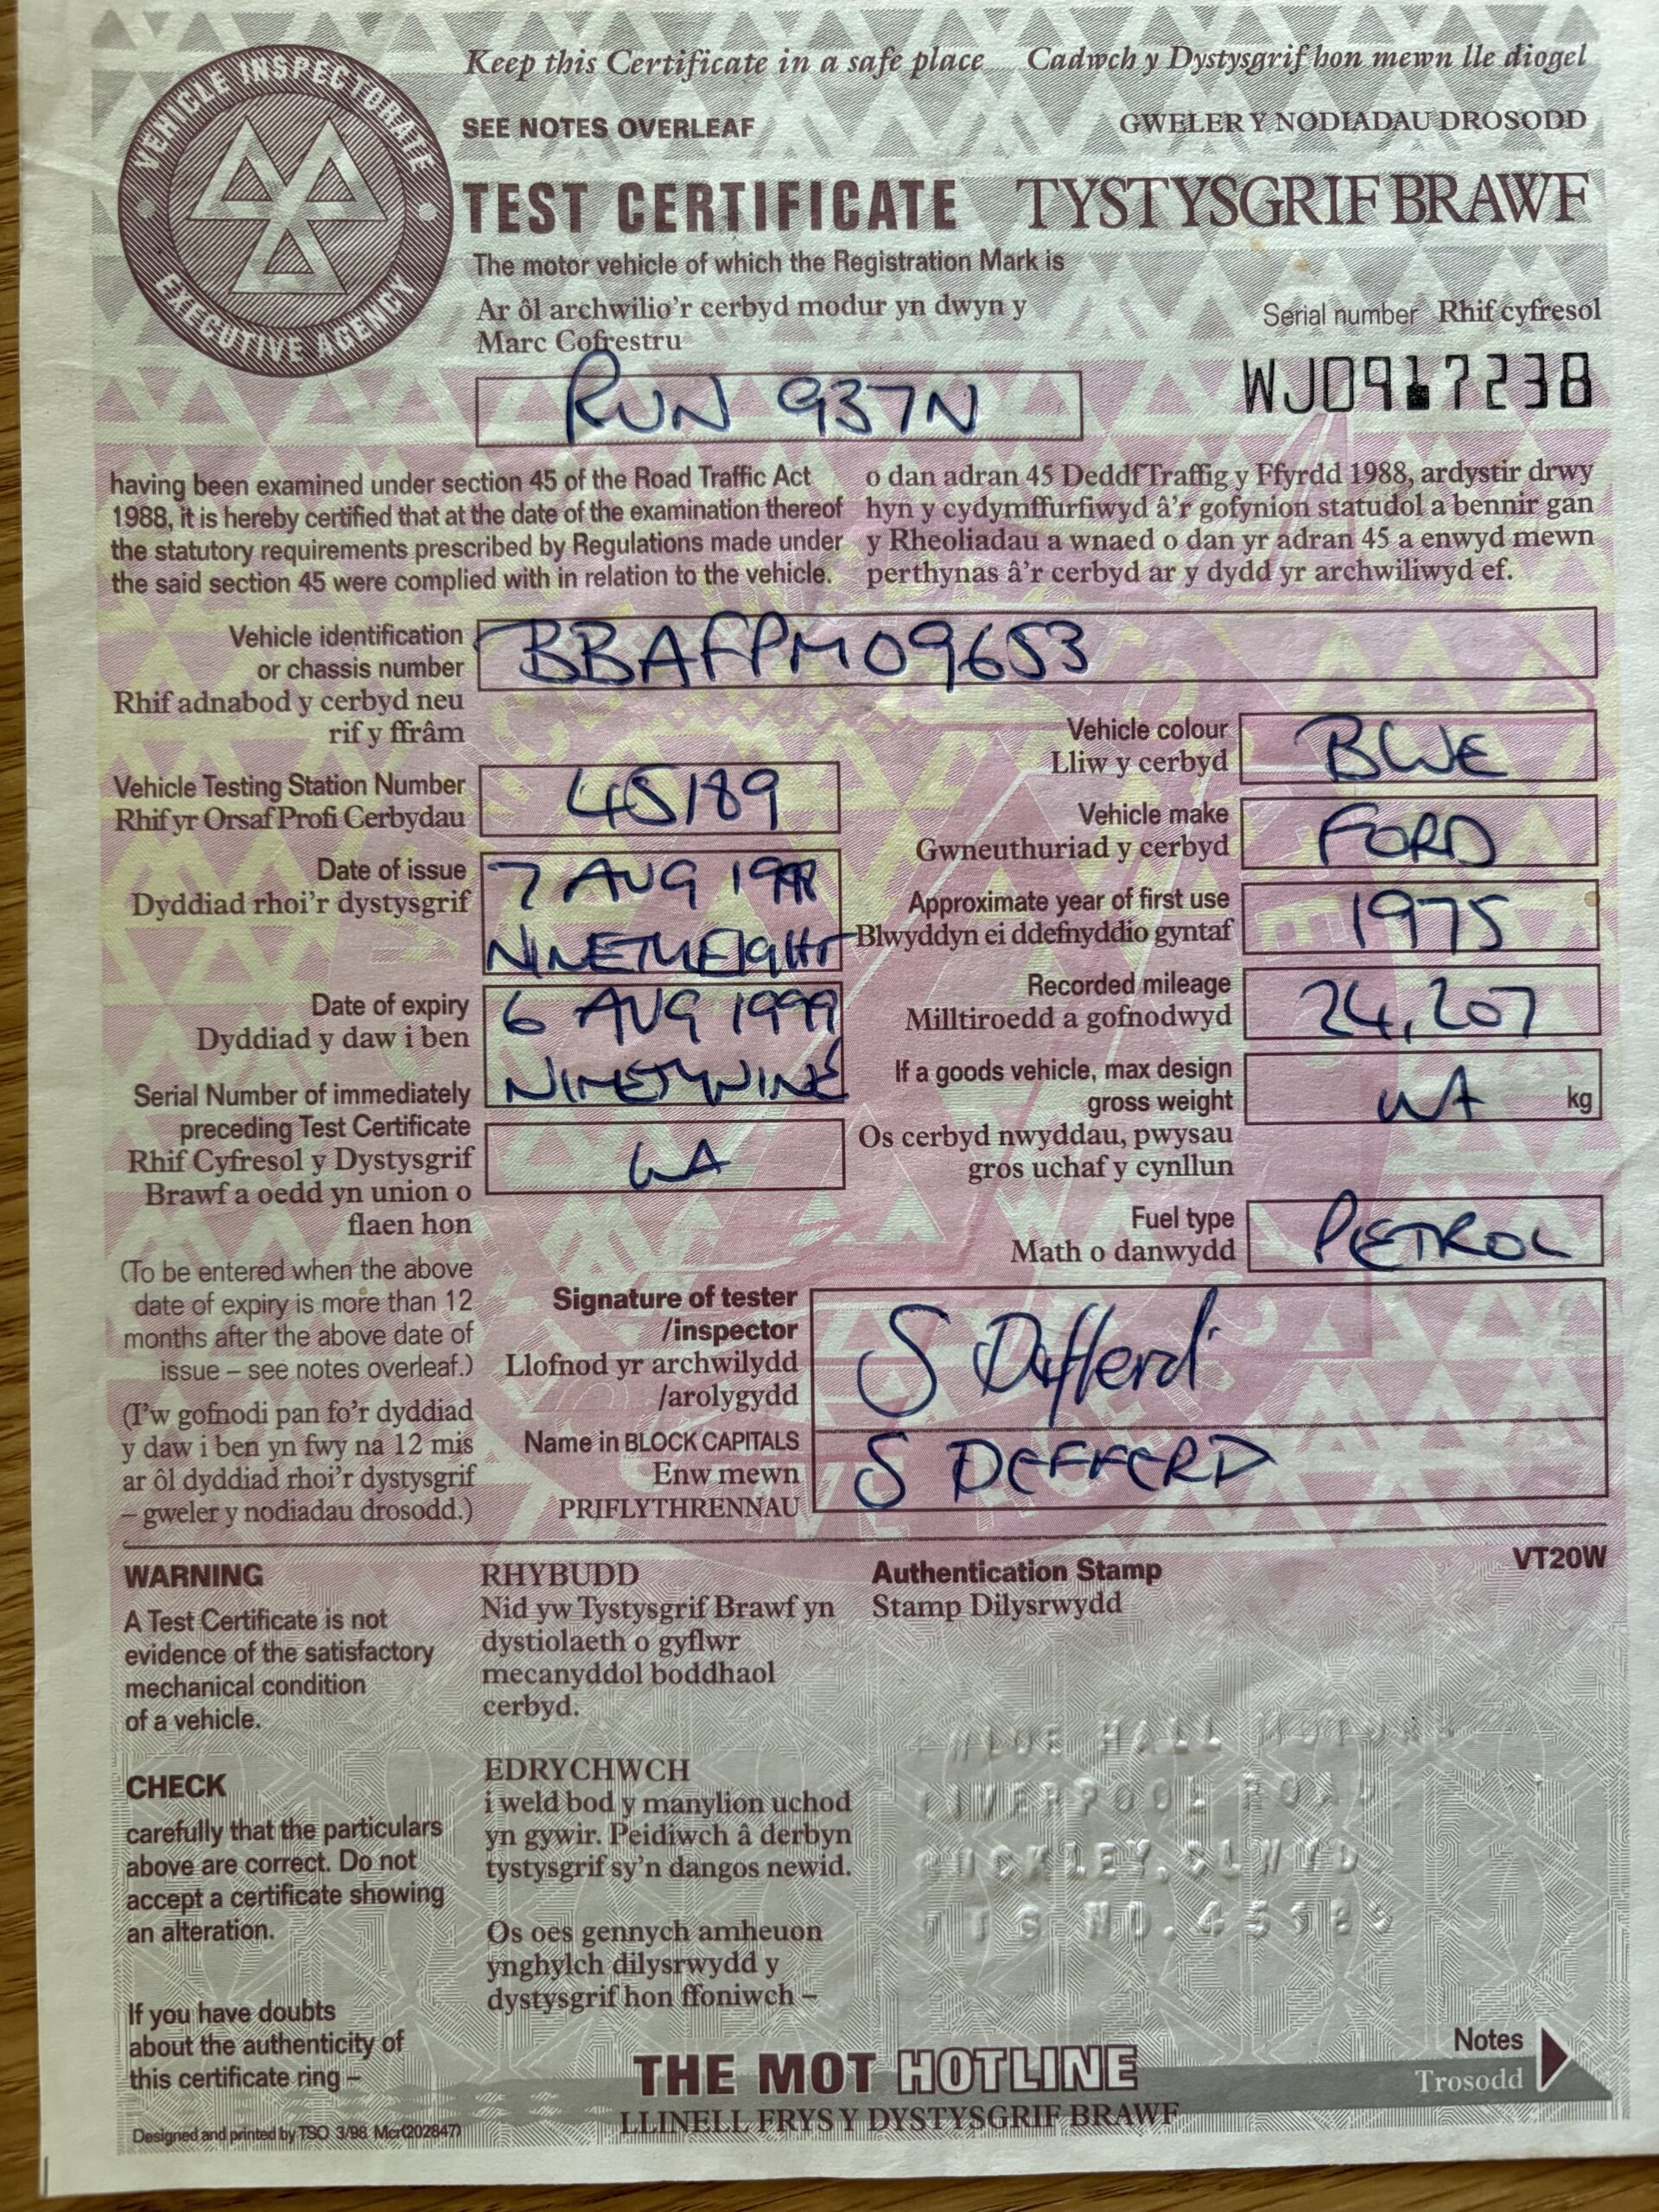 VEHICLE INSPECTORATE
EXECUTIVE AGENCY
Keep this Certificate in a safe place
Cadwch y Dystysgrif hon mewn lle diogel
SEE NOTES OVERLEAF
GWELER Y NODIADAU DROSODD
TEST CERTIFICATE
TYSTYSGRIF BRAWF
The motor vehicle of which the Registration Mark is
Ar ôl archwilio'r cerbyd modur yn dwyn y
Marc Cofrestru
Serial number Rhif cyfresol
RUN 937N
WJ0917238
having been examined under section 45 of the Road Traffic Act
1988, it is hereby certified that at the date of the examination thereof
the statutory requirements prescribed by Regulations made under
the said section 45 were complied with in relation to the vehicle.
o dan adran 45 Deddf Traffig y Ffyrdd 1988, ardystir drwy
hyn y cydymffurfiwyd â'r gofynion statudol a bennir gan
y Rheoliadau a wnaed o dan yr adran 45 a enwyd mewn
perthynas â'r cerbyd ar y dydd yr archwiliwyd ef.
Vehicle identification
or chassis number
Rhif adnabod y cerbyd neu
rif y ffrâm
BBAFPM09653
Vehicle colour
Lliw y cerbyd
BLUE
Vehicle Testing Station Number
Rhif yr Orsaf Profi Cerbydau
45189
Vehicle make
Gwneuthuriad y cerbyd
FORD
Date of issue
Dyddiad rhoi'r dystysgrif
7 AUG 1998
NINETYEIGHT
Approximate year of first use
Blwyddyn ei ddefnyddio gyntaf
1975
Date of expiry
Dyddiad y daw i ben
6 AUG 1999
NINETYNINE
Recorded mileage
Milltiroedd a gofnodwyd
24,207
Serial Number of immediately
preceding Test Certificate
Rhif Cyfresol y Dystysgrif
Brawf a oedd yn union o
flaen hon
NA
If a goods vehicle, max design
gross weight
Os cerbyd nwyddau, pwysau
gros uchaf y cynllun
NA
kg
Fuel type
Math o danwydd
PETROL
(To be entered when the above
date of expiry is more than 12
months after the above date of
issue – see notes overleaf.)
(I'w gofnodi pan fo'r dyddiad
y daw i ben yn fwy na 12 mis
ar ôl dyddiad rhoi'r dystysgrif
– gweler y nodiadau drosodd.)
Signature of tester
/inspector
Llofnod yr archwilydd
/arolygydd
S Defferd
Name in BLOCK CAPITALS
Enw mewn
PRIFLYTHRENNAU
S DEFFERD
VT20W
WARNING
A Test Certificate is not
evidence of the satisfactory
mechanical condition
of a vehicle.
RHYBUDD
Nid yw Tystysgrif Brawf yn
dystiolaeth o gyflwr
mecanyddol boddhaol
cerbyd.
Authentication Stamp
Stamp Dilysrwydd
HALL MOTORS
LIVERPOOL ROAD
BUCKLEY, CLWYD
VTS NO. 45189
CHECK
carefully that the particulars
above are correct. Do not
accept a certificate showing
an alteration.
EDRYCHWCH
i weld bod y manylion uchod
yn gywir. Peidiwch â derbyn
tystysgrif sy'n dangos newid.
If you have doubts
about the authenticity of
this certificate ring –
Os oes gennych amheuon
ynghylch dilysrwydd y
dystysgrif hon ffoniwch –
Notes
Trosodd
THE MOT HOTLINE
LLINELL FRYS Y DYSTYSGRIF BRAWF
Designed and printed by TSO 3/98 Mcr(202847)